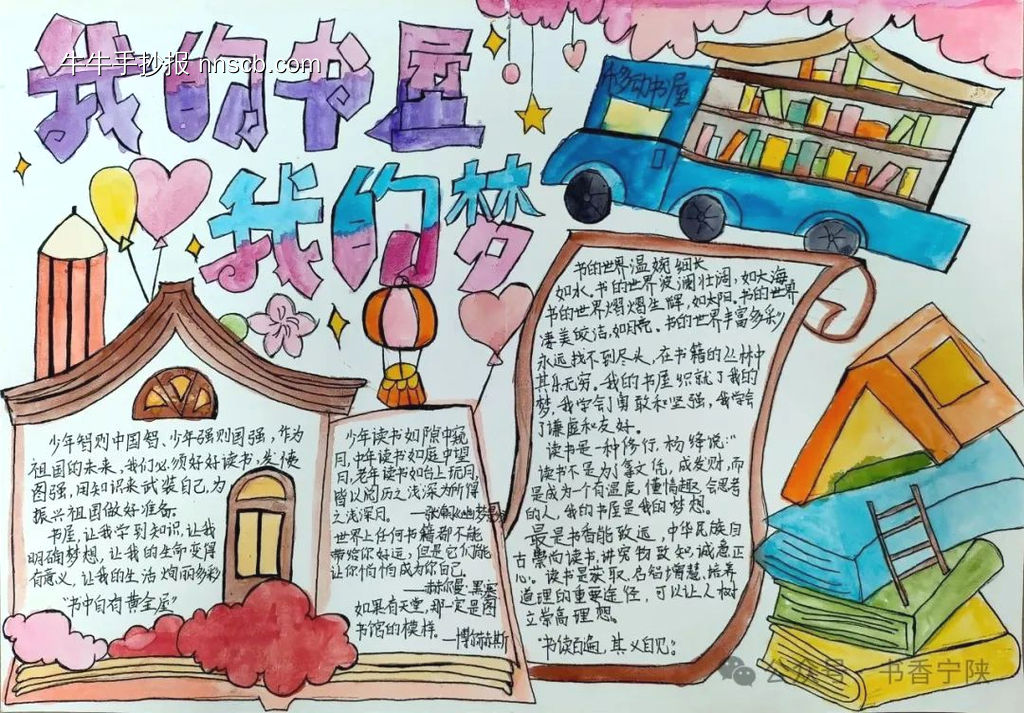 我的书屋
牛牛手抄报 nnscb.com
我的梦
移动书屋
少年智则中国智、少年强则国强，作为
祖国的未来，我们必须好好读书，发愤
图强，用知识来武装自己，为
振兴祖国做好准备。
书屋，让我学到知识，让我
明确梦想，让我的生命变得
有意义，让我的生活绚丽多彩
"书中自有黄金屋"
少年读书如隙中窥
月，中年读书如庭中望
月，老年读书如台上玩月，
皆以阅历之浅深为所得
之浅深耳。
世界上任何书籍都不能
带给你好运，但是它们能
让你悄悄成为你自己。
——赫尔曼·黑塞
如果有天堂，那一定是图
书馆的模样。——博尔赫斯
书的世界温婉细长
如水，书的世界波澜壮阔，如大海，
书的世界熠熠生辉，如太阳。书的世界
凄美皎洁，如月亮，书的世界丰富多彩，
永远找不到尽头，在书籍的丛林中
其乐无穷。我的书屋织就了我的
梦，我学会了勇敢和坚强，我学会
了谦虚和友好。
读书是一种修行，杨绛说："
读书不是为了拿文凭，成发财，而
是成为一个有温度，懂情趣，会思考
的人，我的书屋是我的梦想。
最是书香能致远，中华民族自
古崇尚读书，讲究格物致知，诚意正
心。读书是获取，启智增慧，培养
道理的重要途径，可以让人树
立崇高理想。
"书读百遍，其义自见。
公众号·书香宁陕